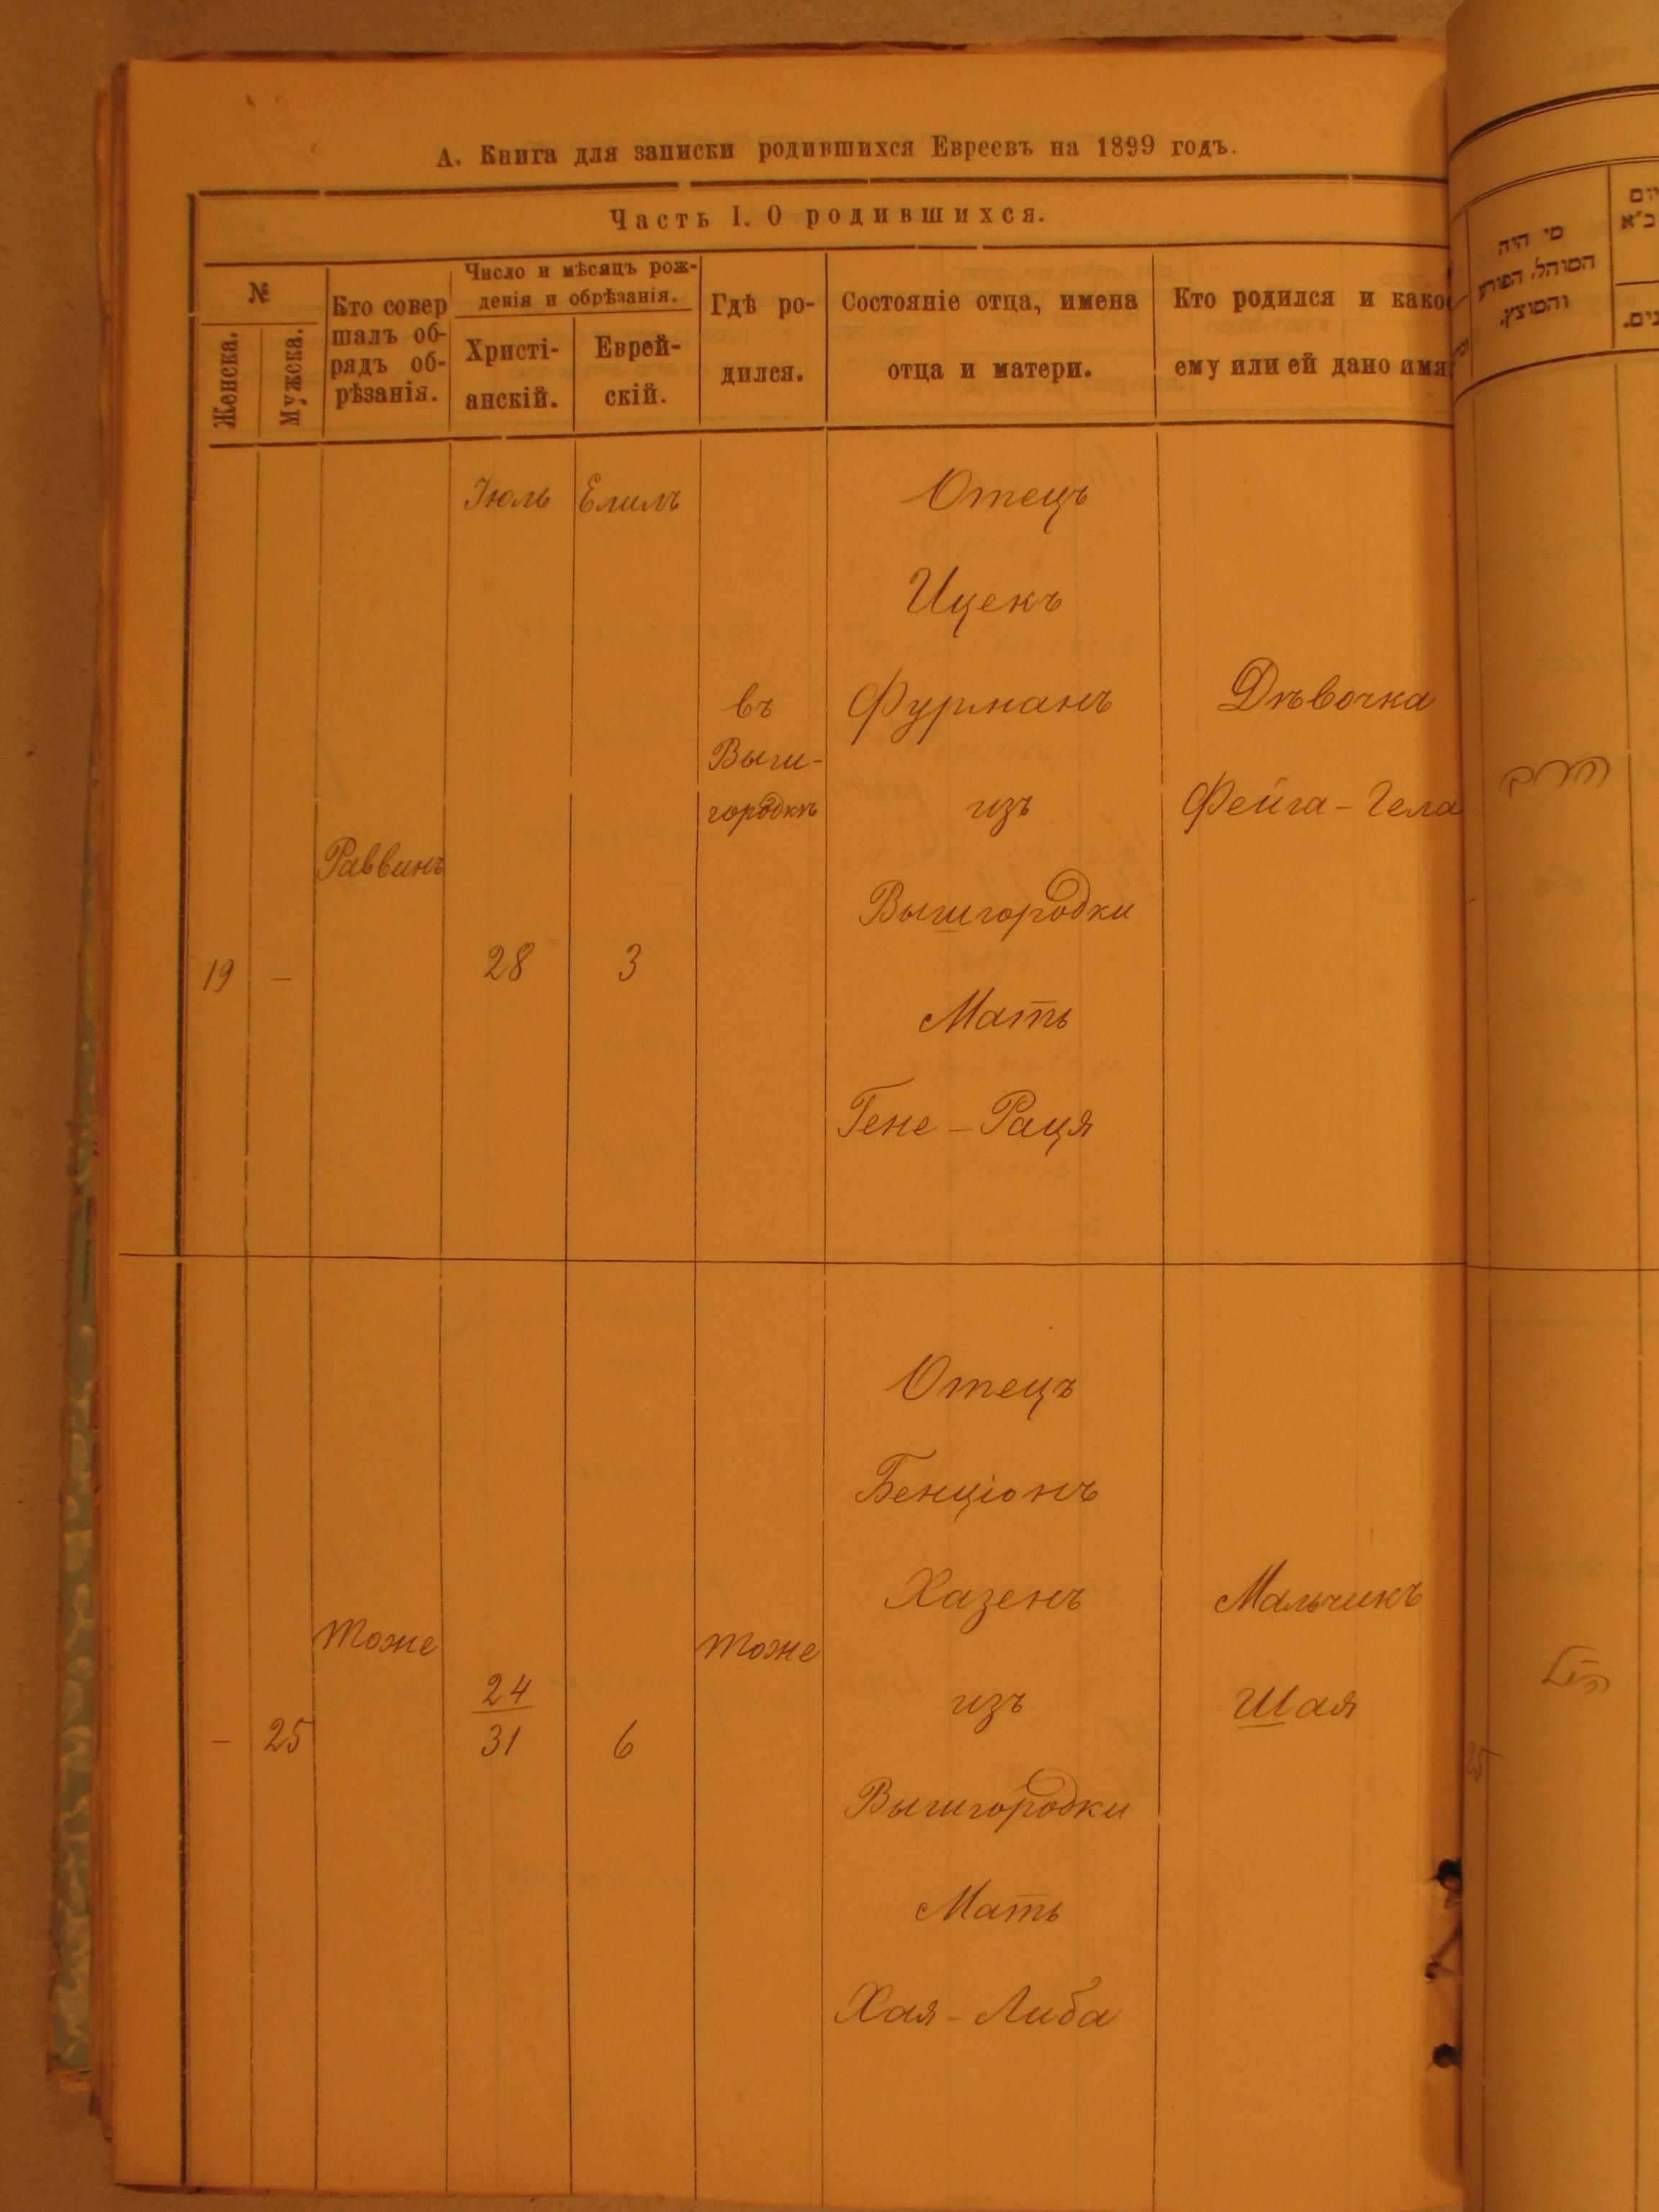 А. Книга для записки родившихся Евреевъ на 1899 годъ.
Часть I. О родившихся.
№
Женска.
Мужска.
Кто совер
шалъ об-
рядъ об-
рѣзанія.
Число и мѣсяцъ рож-
денія и обрѣзанія.
Христі-
анскій.
Еврей-
скій.
Гдѣ ро-
дился.
Состояніе отца, имена
отца и матери.
Кто родился и како
ему или ей дано имя
מי היה
המוהל, הפורע
והמוצץ.
19
–
Раввинъ
Іюль
28
Елилъ
3
въ
Выш-
городкѣ
Отецъ
Ицекъ
Фурманъ
изъ
Вышгородки
Мать
Гене-Рация
Дѣвочка
Фейга-Гела
–
25
тоже
24
31
6
тоже
Отецъ
Бенціонъ
Хазенъ
изъ
Вышгородки
Мать
Хая-Либа
Мальчикъ
Шая
הרב
25